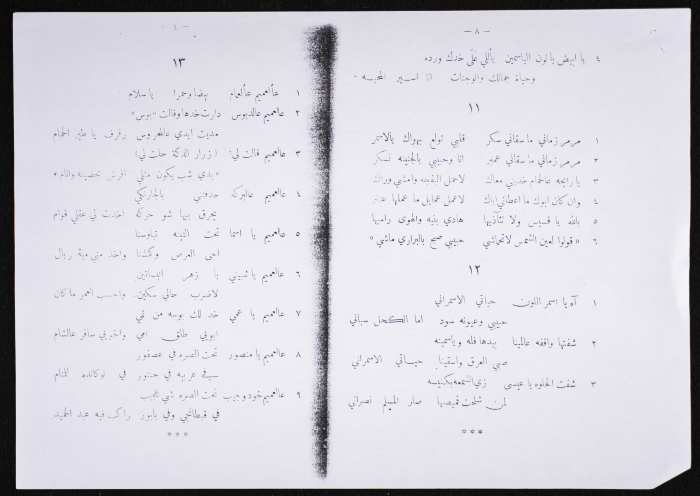 — ٨ —
٤ يا ابيض يا لون الياسمين ياللي على خدك ورده
وحياة جمالك والوجنات انا اسير المحبسه .
١١
١ مرمر زماني ما سقاني سكر قلبي تولع بهواك يالاسمر
٢ مرمر زماني ما سقاني عمبر انا وحبيبي بالجنينه نسكر
٣ يا رايحه عالحمام خديني معاك لاحمل البقجه وامشي وراك
٤ وان كان ابوك ما اعطاني اياك لاعمل عمايل ما عملها عنتر
٥ بالله يا قسيس ولا تتأذيها هادي بنيه والهوى راميها
٦ « قولوا لعين الشمس لاتحماشي حبيبي صبح بالبراري ماشي »
١٢
١ آه يا اسمر اللون حياتي الاسمراني
حبيبي وعيونه سود اما الكحل سباني
٢ شفتها واقفه عالمينا بيدها فله وياسمينه
صبي العرق واسقينا حياتي الاسمراني
٣ شفت الحلوه يا عيسى زي الشمعه بكنيسه
لمن شلحت قميصها صار المسلم نصراني
***
— ٩ —
١٣
١ عالعميم عالعمام بيضا وحمرا يا سلام
٢ عالعميم عالدبوس دارت خدها وقالت «بوس»
مديت ايدي عالمحروس رفرف يا طير الحمام
٣ عالعميم قالت لي: (زرار الدكة حات لي)
«بدي شب يكون مثلي افرش بحضينه وانام»
٤ عالعميم عالبركه حدفتني بالجاركي
يحرق بيها شو حركه اخدت لي عقلي قوام
٥ عالعميم يا اسما تحت التينه تباوسنا
اجى العرص وكمشنا واخد مني مية ريال
٦ عالعميم يا شبيني يا زهر البساتين
لاضرب حالي سكين واحسب العمر ما كان
٧ عالعميم يا عمي خد لك بوسه من تمي
ابويي طلق امي واخدني سافر عالشام
٨ عالعميم يا منصور تحت الصره في عصفور
في عربيه في حنتور في لوكانده للمنام
٩ عالعميم خود وجيب تحت الصره شي عجب
في قبطانجي وفي بابور راكب فيه عبد الحميد
***